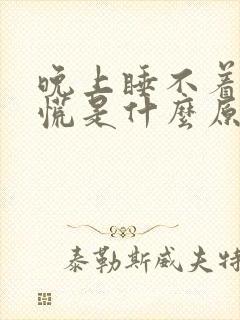 晚上睡不着
慌是什麼原
泰勒斯威夫特